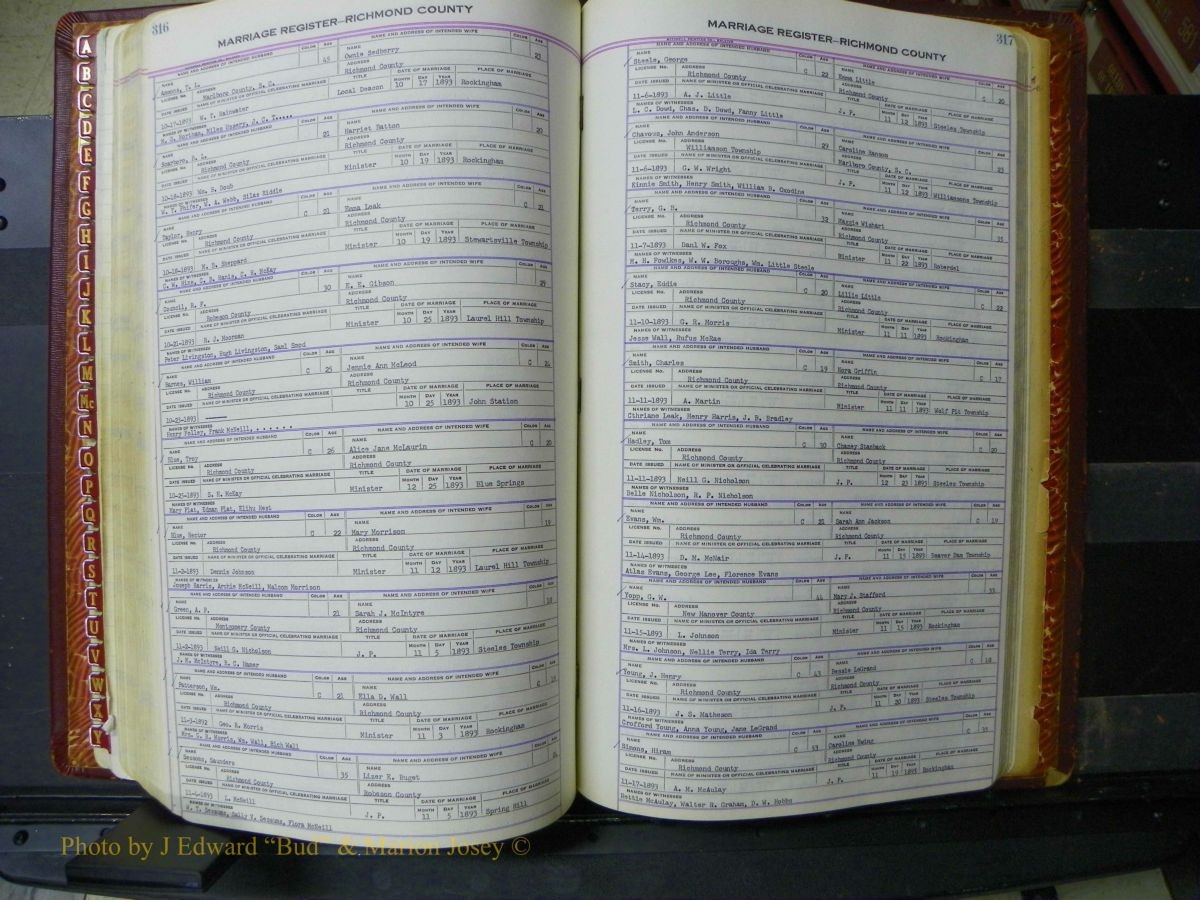 316
MARRIAGE REGISTER—RICHMOND COUNTY
NAME AND ADDRESS OF INTENDED HUSBAND COLOR AGE NAME AND ADDRESS OF INTENDED WIFE COLOR AGE
Ammons, T. L. 45 Ownie Sedberry 23
Marlboro County, S. C. Richmond County
10-17-1893 W. I. Rainwater Local Deacon 10 17 1893 Rockingham
Scarboro, R. L. 21 Harriet Hatton 20
Richmond County Richmond County
10-18-1893 Wm. B. Doub Minister 10 19 1893 Rockingham
W. T. Phifer, W. A. Webb, Silas Kiddle
Taylor, Henry C 21 Emma Leak C 21
Richmond County Richmond County
10-18-1893 M. B. Sheppard Minister 10 19 1893 Stewartsville Township
Council, R. F. 30 E. E. Gibson 29
Robeson County Richmond County
10-21-1893 R. J. Moorman Minister 10 25 1893 Laurel Hill Township
Peter Livingston, Hugh Livingston, Saml Snead
Barnes, William C 25 Jennie Ann McLeod C 24
Richmond County Richmond County
10-23-1893 10 25 1893 John Station
Henry Polley, Frank McNeill, . . . . . . .
Blue, Troy C 26 Alice Jane McLaurin C 20
Richmond County Richmond County
10-25-1893 S. H. McKay Minister 12 25 1893 Blue Springs
Blue, Hector C 22 Mary Morrison 19
Richmond County Richmond County
11-2-1893 Dennis Johnson Minister 11 12 1893 Laurel Hill Township
Joseph Harris, Archie McNeill, Malcom Morrison
Green, A. P. 21 Sarah J. McIntyre 18
Montgomery County Richmond County
11-2-1893 Neill G. Nicholson J. P. 11 5 1893 Steeles Township
J. M. McIntyre, R. C. Hamer
Patterson, Wm. C 21 Ella D. Wall C 19
Richmond County Richmond County
11-3-1892 Geo. R. Morris Minister 11 3 1893 Rockingham
Mrs. G. R. Morris, Wm. Wall, Rich Wall
Sessoms, Saunders 35 Lizer E. Huget 24
Richmond County Robeson County
11-4-1893 L. McNeill J. P. 11 5 1893 Spring Hill
W. T. Sessoms, Sally V. Sessoms, Flora McNeill
MARRIAGE REGISTER—RICHMOND COUNTY
317
NAME AND ADDRESS OF INTENDED HUSBAND COLOR AGE NAME AND ADDRESS OF INTENDED WIFE COLOR AGE
Steele, George C 22 Emma Little C 20
Richmond County Richmond County
11-6-1893 A. J. Little J. P. 11 12 1893 Steeles Township
L. C. Dowd, Chas. D. Dowd, Fanny Little
Chavous, John Anderson 29 Caroline Ransom 23
Williamson Township Marlboro County, S. C.
11-6-1893 G. W. Wright J. P. 11 12 1893 Williamsons Township
Kinnie Smith, Henry Smith, William B. Oxedine
Terry, G. B. 32 Maggie Wishart 35
Richmond County Richmond County
11-7-1893 Danl W. Fox Minister 11 22 1893 Roberdel
M. H. Fowlkes, W. W. Boroughs, Wm. Little Steele
Stacy, Eddie C 20 Lillie Little C 22
Richmond County Richmond County
11-10-1893 G. R. Morris Minister 11 11 1893 Rockingham
Jesse Wall, Rufus McRae
Smith, Charles C 19 Nora Griffin C 17
Richmond County Richmond County
11-11-1893 A. Martin Minister 11 11 1893 Wolf Pit Township
Cthriane Leak, Henry Harris, J. B. Bradley
Hadley, Tom C 30 Chaney Stanback C 20
Richmond County Richmond County
11-11-1893 Neill G. Nicholson J. P. 12 23 1893 Steeles Township
Belle Nicholson, R. P. Nicholson
Evans, Wm. C 21 Sarah Ann Jackson C 19
Richmond County Richmond County
11-14-1893 D. M. McNair J. P. 11 15 1893 Beaver Dam Township
Atlas Evans, George Lee, Florence Evans
Yopp, G. W. 44 Mary J. Stafford 33
New Hanover County Richmond County
11-15-1893 L. Johnson Minister 11 15 1893 Rockingham
Mrs. L. Johnson, Nellie Terry, Ida Terry
Young, J. Henry C 43 Bessie LeGrand C 18
Richmond County Richmond County
11-16-1893 J. S. Matheson J. P. 11 20 1893 Steeles Township
Crofford Young, Anna Young, Jane LeGrand
Simons, Hiram C 53 Caroline Ewing C 35
Richmond County Richmond County
11-17-1893 A. M. McAulay J. P. 11 19 1893 Rockingham
Hettie McAulay, Walter R. Graham, D. W. Hobbs
A
B
C
D
E
F
G
H
I
J
K
L
M
Mc
N
O
P
Q
R
S
T
U
V
W
Photo by J Edward “Bud” & Marion Josey ©